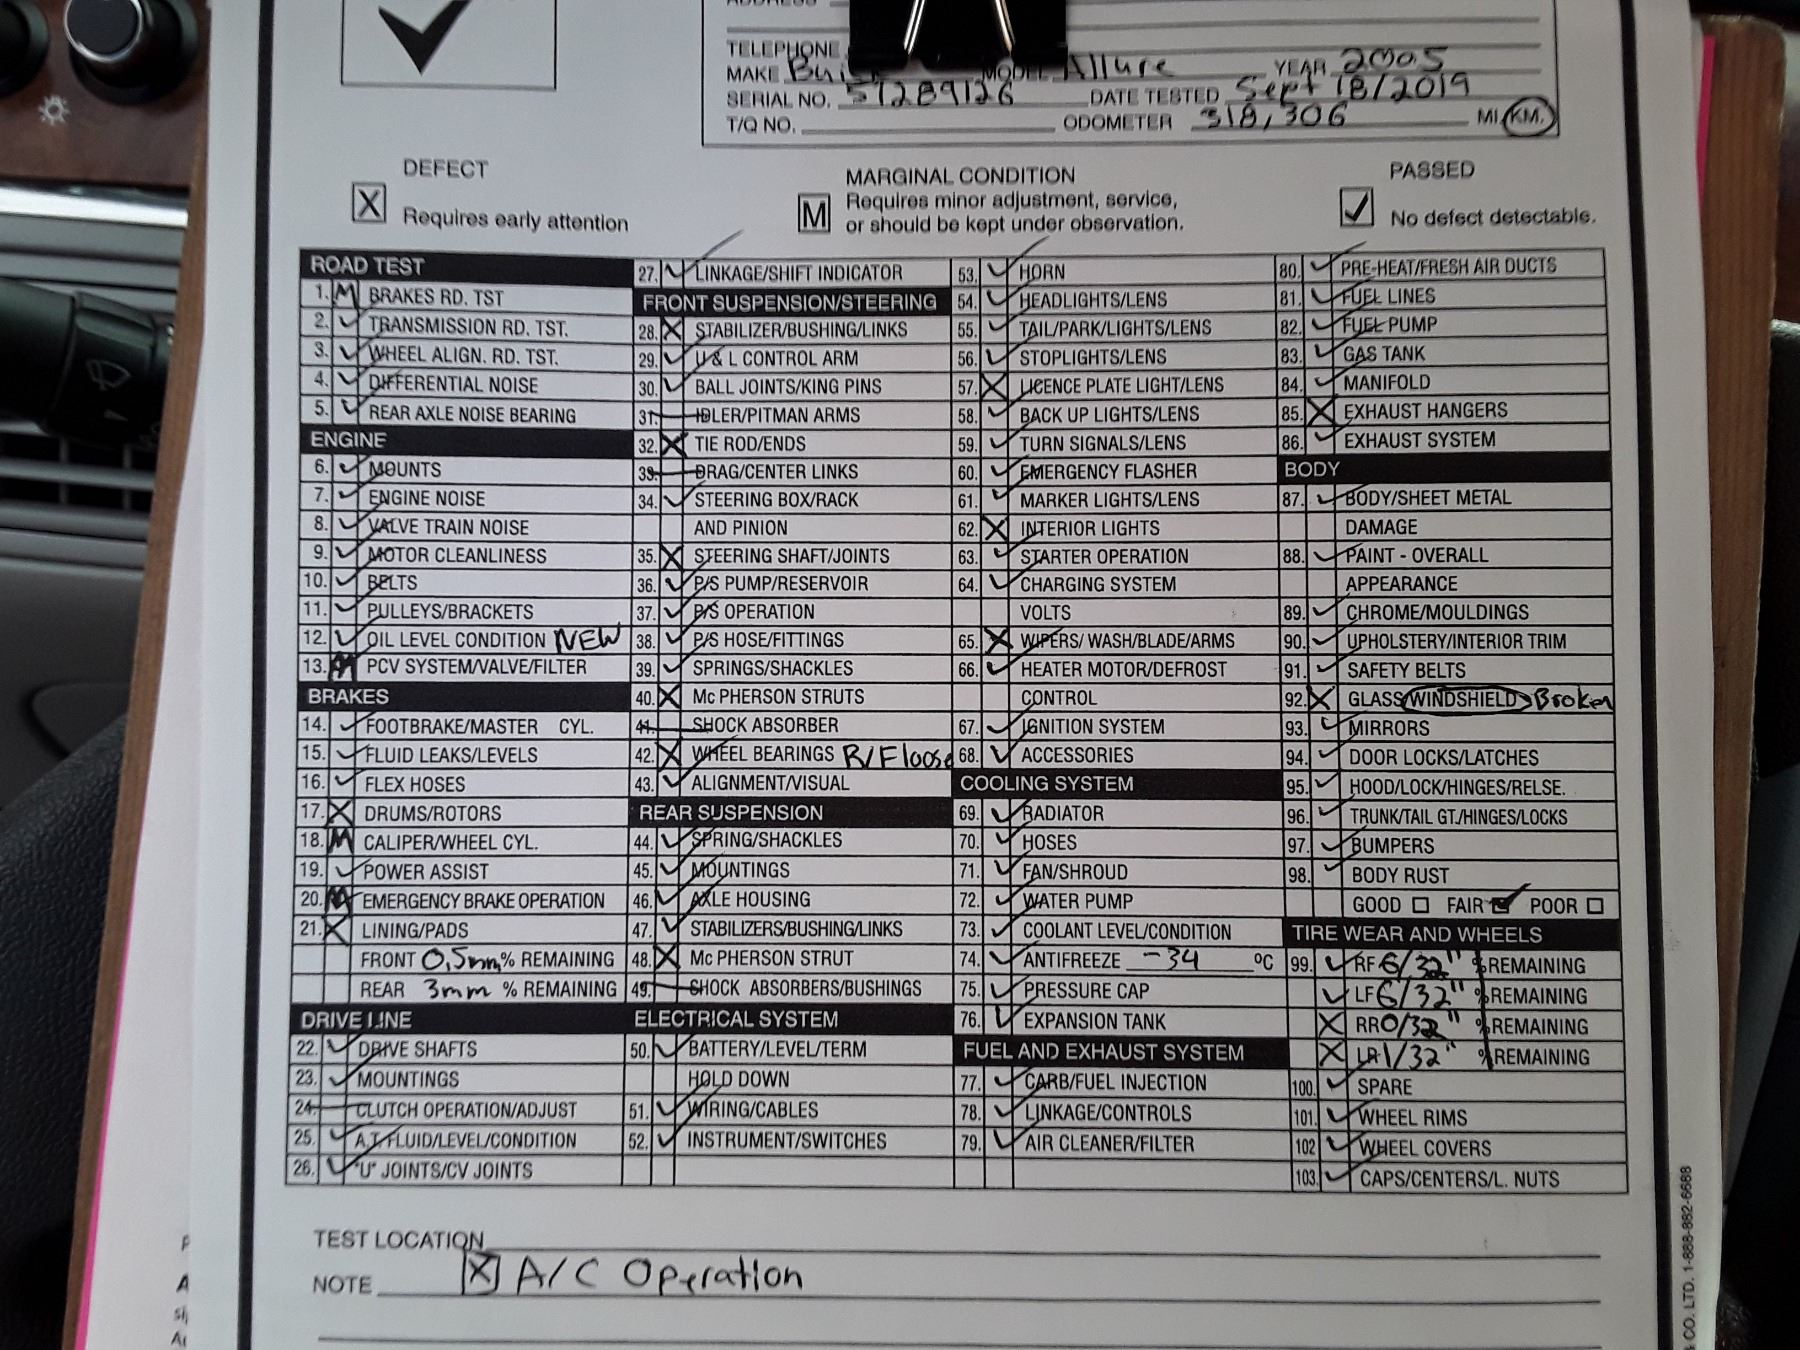 TELEPHONE
MAKE Buick MODEL Allure YEAR 2005
SERIAL NO. 51289126 DATE TESTED Sept 18/2019
T/Q NO. ODOMETER 318,306 MI. KM.
DEFECT
X Requires early attention
MARGINAL CONDITION
M Requires minor adjustment, service,
or should be kept under observation.
PASSED
✓ No defect detectable.
ROAD TEST
1. M BRAKES RD. TST
2. ✓ TRANSMISSION RD. TST.
3. ✓ WHEEL ALIGN. RD. TST.
4. ✓ DIFFERENTIAL NOISE
5. ✓ REAR AXLE NOISE BEARING
ENGINE
6. ✓ MOUNTS
7. ✓ ENGINE NOISE
8. ✓ VALVE TRAIN NOISE
9. ✓ MOTOR CLEANLINESS
10. ✓ BELTS
11. ✓ PULLEYS/BRACKETS
12. ✓ OIL LEVEL CONDITION NEW
13. M PCV SYSTEM/VALVE/FILTER
BRAKES
14. ✓ FOOTBRAKE/MASTER CYL.
15. ✓ FLUID LEAKS/LEVELS
16. ✓ FLEX HOSES
17. X DRUMS/ROTORS
18. M CALIPER/WHEEL CYL.
19. ✓ POWER ASSIST
20. M EMERGENCY BRAKE OPERATION
21. X LINING/PADS
FRONT 0.5mm % REMAINING
REAR 3mm % REMAINING
DRIVE LINE
22. ✓ DRIVE SHAFTS
23. ✓ MOUNTINGS
24. CLUTCH OPERATION/ADJUST
25. ✓ A.T. FLUID/LEVEL/CONDITION
26. ✓ "U" JOINTS/CV JOINTS
27. ✓ LINKAGE/SHIFT INDICATOR
FRONT SUSPENSION/STEERING
28. X STABILIZER/BUSHING/LINKS
29. ✓ U & L CONTROL ARM
30. ✓ BALL JOINTS/KING PINS
31. IDLER/PITMAN ARMS
32. X TIE ROD/ENDS
33. DRAG/CENTER LINKS
34. ✓ STEERING BOX/RACK
AND PINION
35. X STEERING SHAFT/JOINTS
36. ✓ P/S PUMP/RESERVOIR
37. ✓ P/S OPERATION
38. ✓ P/S HOSE/FITTINGS
39. ✓ SPRINGS/SHACKLES
40. X Mc PHERSON STRUTS
41. SHOCK ABSORBER
42. X WHEEL BEARINGS R/F loose
43. ✓ ALIGNMENT/VISUAL
REAR SUSPENSION
44. ✓ SPRING/SHACKLES
45. ✓ MOUNTINGS
46. ✓ AXLE HOUSING
47. ✓ STABILIZERS/BUSHING/LINKS
48. X Mc PHERSON STRUT
49. SHOCK ABSORBERS/BUSHINGS
ELECTRICAL SYSTEM
50. ✓ BATTERY/LEVEL/TERM
HOLD DOWN
51. ✓ WIRING/CABLES
52. ✓ INSTRUMENT/SWITCHES
53. ✓ HORN
54. ✓ HEADLIGHTS/LENS
55. ✓ TAIL/PARK/LIGHTS/LENS
56. ✓ STOPLIGHTS/LENS
57. X LICENCE PLATE LIGHT/LENS
58. ✓ BACK UP LIGHTS/LENS
59. ✓ TURN SIGNALS/LENS
60. ✓ EMERGENCY FLASHER
61. ✓ MARKER LIGHTS/LENS
62. X INTERIOR LIGHTS
63. ✓ STARTER OPERATION
64. ✓ CHARGING SYSTEM
VOLTS
65. X WIPERS/ WASH/BLADE/ARMS
66. ✓ HEATER MOTOR/DEFROST
CONTROL
67. ✓ IGNITION SYSTEM
68. ✓ ACCESSORIES
COOLING SYSTEM
69. ✓ RADIATOR
70. ✓ HOSES
71. ✓ FAN/SHROUD
72. ✓ WATER PUMP
73. ✓ COOLANT LEVEL/CONDITION
74. ✓ ANTIFREEZE -34 °C
75. ✓ PRESSURE CAP
76. ✓ EXPANSION TANK
FUEL AND EXHAUST SYSTEM
77. ✓ CARB/FUEL INJECTION
78. ✓ LINKAGE/CONTROLS
79. ✓ AIR CLEANER/FILTER
80. ✓ PRE-HEAT/FRESH AIR DUCTS
81. ✓ FUEL LINES
82. ✓ FUEL PUMP
83. ✓ GAS TANK
84. ✓ MANIFOLD
85. X EXHAUST HANGERS
86. ✓ EXHAUST SYSTEM
BODY
87. ✓ BODY/SHEET METAL
DAMAGE
88. ✓ PAINT - OVERALL
APPEARANCE
89. ✓ CHROME/MOULDINGS
90. ✓ UPHOLSTERY/INTERIOR TRIM
91. ✓ SAFETY BELTS
92. X GLASS WINDSHIELD Broken
93. ✓ MIRRORS
94. ✓ DOOR LOCKS/LATCHES
95. ✓ HOOD/LOCK/HINGES/RELSE.
96. ✓ TRUNK/TAIL GT./HINGES/LOCKS
97. ✓ BUMPERS
98. ✓ BODY RUST
GOOD ☐ FAIR ☑ POOR ☐
TIRE WEAR AND WHEELS
99. ✓ RF 6/32" % REMAINING
✓ LF 6/32" % REMAINING
X RR 0/32" % REMAINING
X LR 1/32" % REMAINING
100. ✓ SPARE
101. ✓ WHEEL RIMS
102 ✓ WHEEL COVERS
103. ✓ CAPS/CENTERS/L. NUTS
TEST LOCATION
NOTE X A/C Operation
CO. LTD. 1-888-882-6688